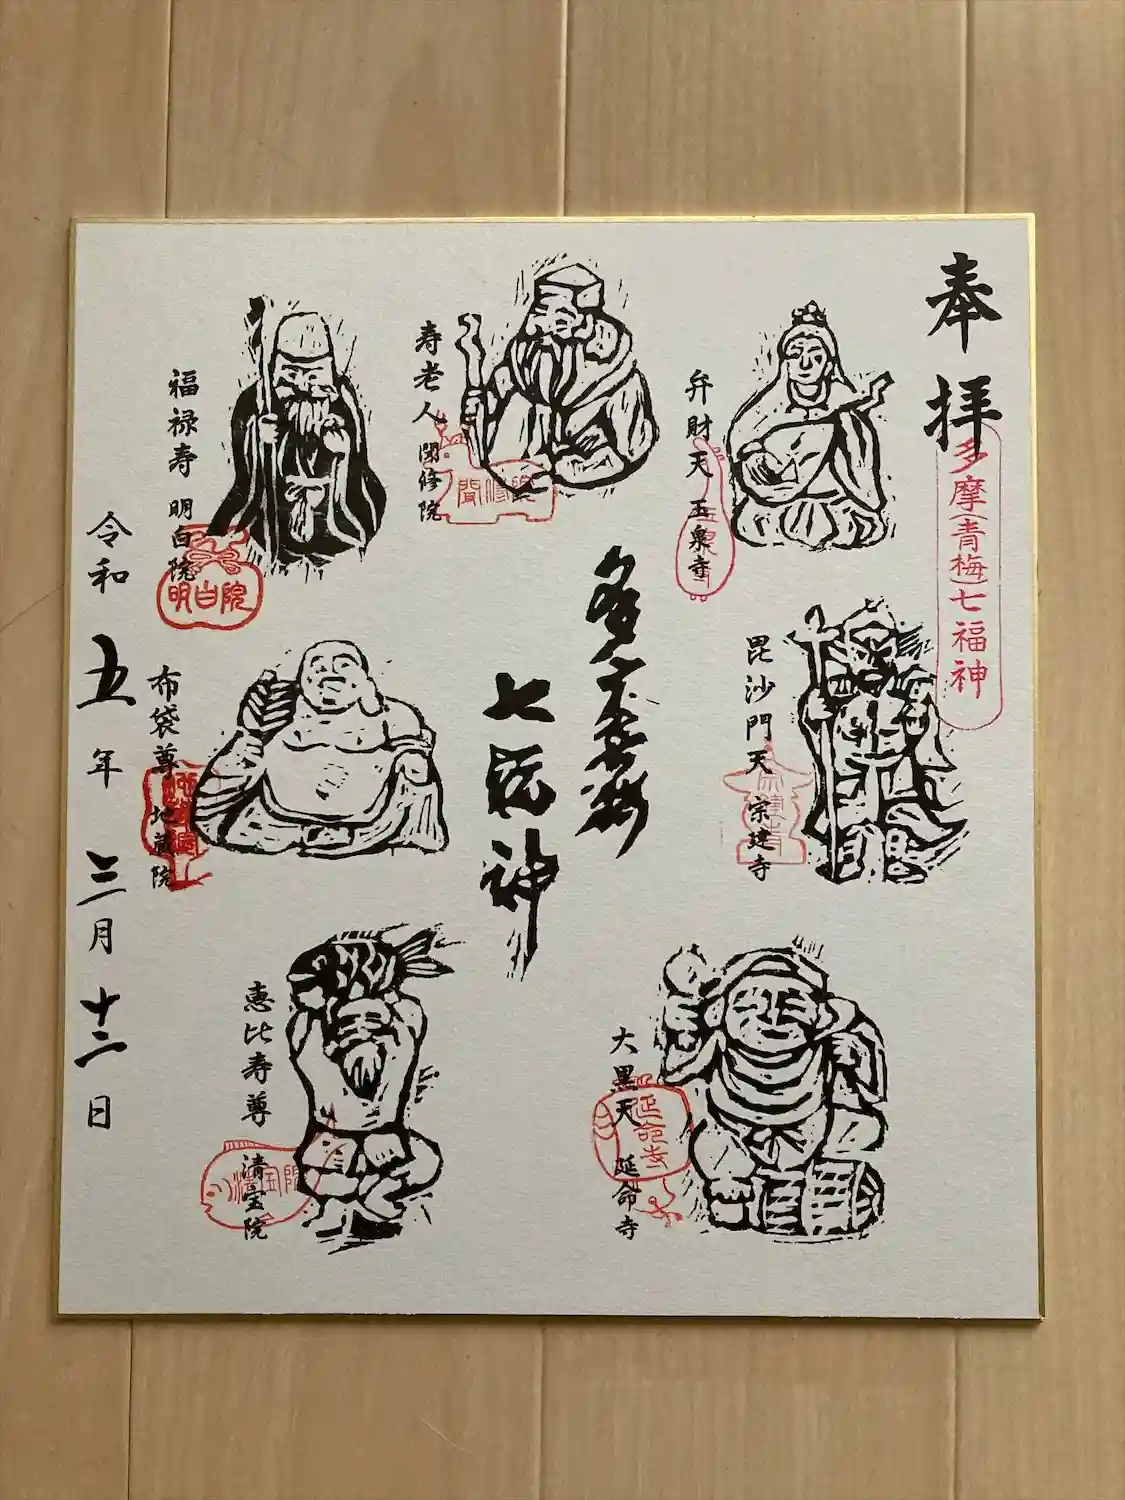 奉拝
多摩(青梅)七福神
弁財天 玉泉寺
毘沙門天 宗建寺
大黒天 延命寺
延命寺
寿老人 聞修院
聞修院
多摩青梅
七福神
福禄寿 明白院
明白院
布袋尊 地蔵院
恵比寿尊 清宝院
令和五年三月十二日